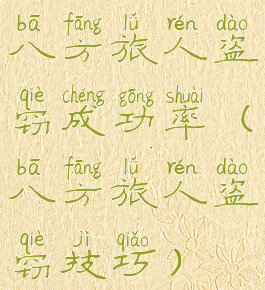 bā fāng lǚ rén dào
八方旅人盗
qiè chéng gōng shuài
窃成功率（
bā fāng lǚ rén dào
八方旅人盗
qiè jì qiǎo
窃技巧）